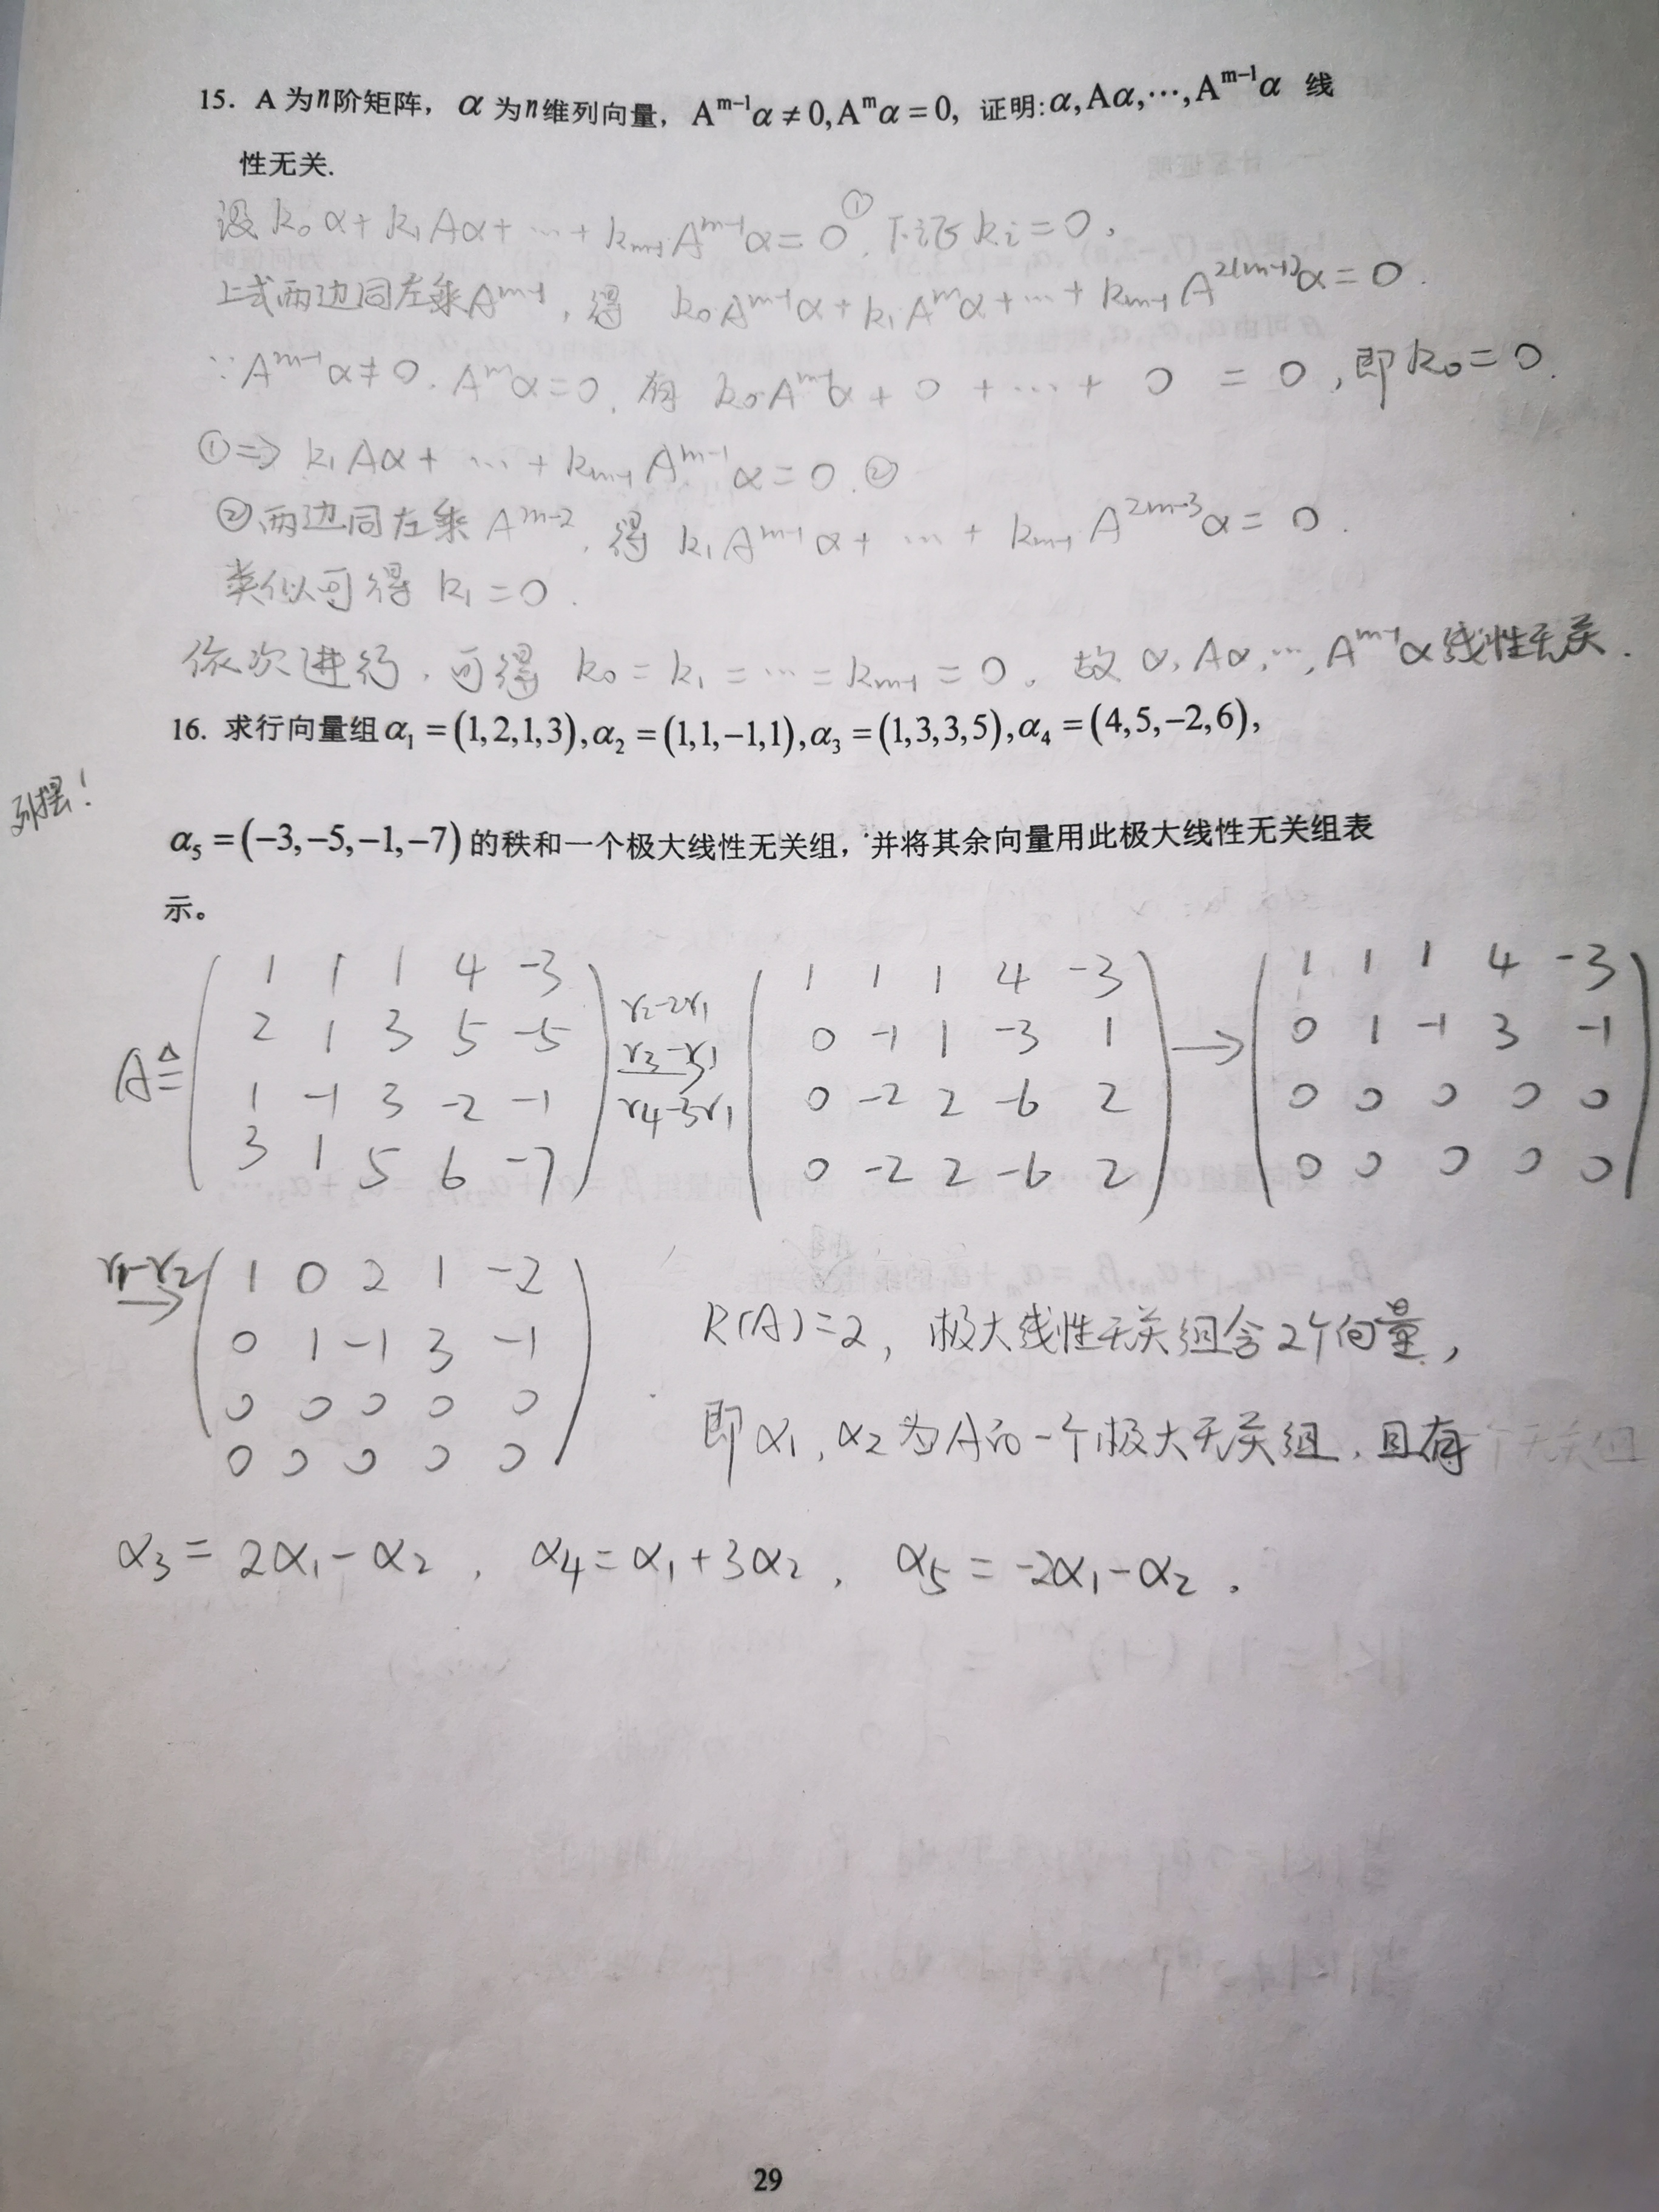 15. A为n阶矩阵，α为n维列向量，Aᵐ⁻¹α≠0,Aᵐα=0, 证明:α,Aα,⋯,Aᵐ⁻¹α 线
性无关.
设k₀α+k₁Aα+⋯+kₘ₋₁Aᵐ⁻¹α=0①, 下证kᵢ=0.
上式两边同左乘Aᵐ⁻¹, 得 k₀Aᵐ⁻¹α+k₁Aᵐα+⋯+kₘ₋₁A²⁽ᵐ⁻¹⁾α=0.
∵Aᵐ⁻¹α≠0. Aᵐα=0, 有 k₀Aᵐ⁻¹α+0+⋯+0=0, 即k₀=0.
①⇒k₁Aα+⋯+kₘ₋₁Aᵐ⁻¹α=0.②
②两边同左乘Aᵐ⁻², 得 k₁Aᵐ⁻¹α+⋯+kₘ₋₁A²ᵐ⁻³α=0.
类似可得k₁=0.
依次进行, 可得 k₀=k₁=⋯=kₘ₋₁=0. 故α, Aα,⋯, Aᵐ⁻¹α线性无关.
16. 求行向量组α₁=(1,2,1,3),α₂=(1,1,−1,1),α₃=(1,3,3,5),α₄=(4,5,−2,6),
列摆!
α₅=(−3,−5,−1,−7)的秩和一个极大线性无关组，并将其余向量用此极大线性无关组表
示。
1 1 1 4 -3
2 1 3 5 -5
A≜
1 -1 3 -2 -1
3 1 5 6 -7
r₂-2r₁
r₃-r₁
r₄-3r₁
1 1 1 4 -3
0 -1 1 -3 1
0 -2 2 -6 2
0 -2 2 -6 2
→
1 1 1 4 -3
0 1 -1 3 -1
0 0 0 0 0
0 0 0 0 0
r₁-r₂
→
1 0 2 1 -2
0 1 -1 3 -1
0 0 0 0 0
0 0 0 0 0
R(A)=2, 极大线性无关组含2个向量,
即α₁, α₂为A的一个极大无关组, 且有
α₃=2α₁-α₂, α₄=α₁+3α₂, α₅=-2α₁-α₂.
29